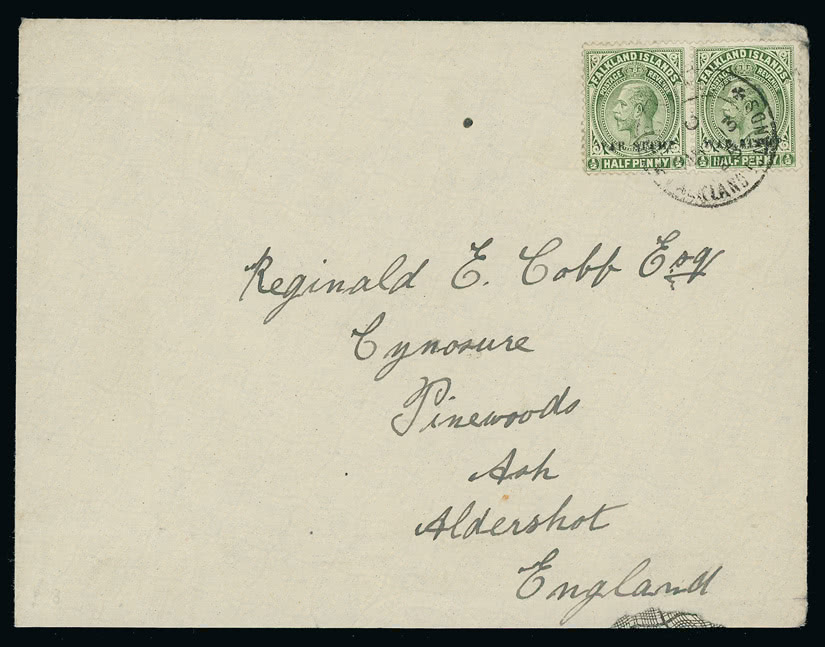 FALKLAND ISLANDS FALKLAND ISLANDS
POSTAGE REVENUE POSTAGE REVENUE
WAR STAMP WAR STAMP
½ HALFPENNY ½ ½ HALFPENNY ½
FALKLAND ISLANDS
Reginald E. Cobb Esq
Cynosure
Pinewoods
Ash
Aldershot
England